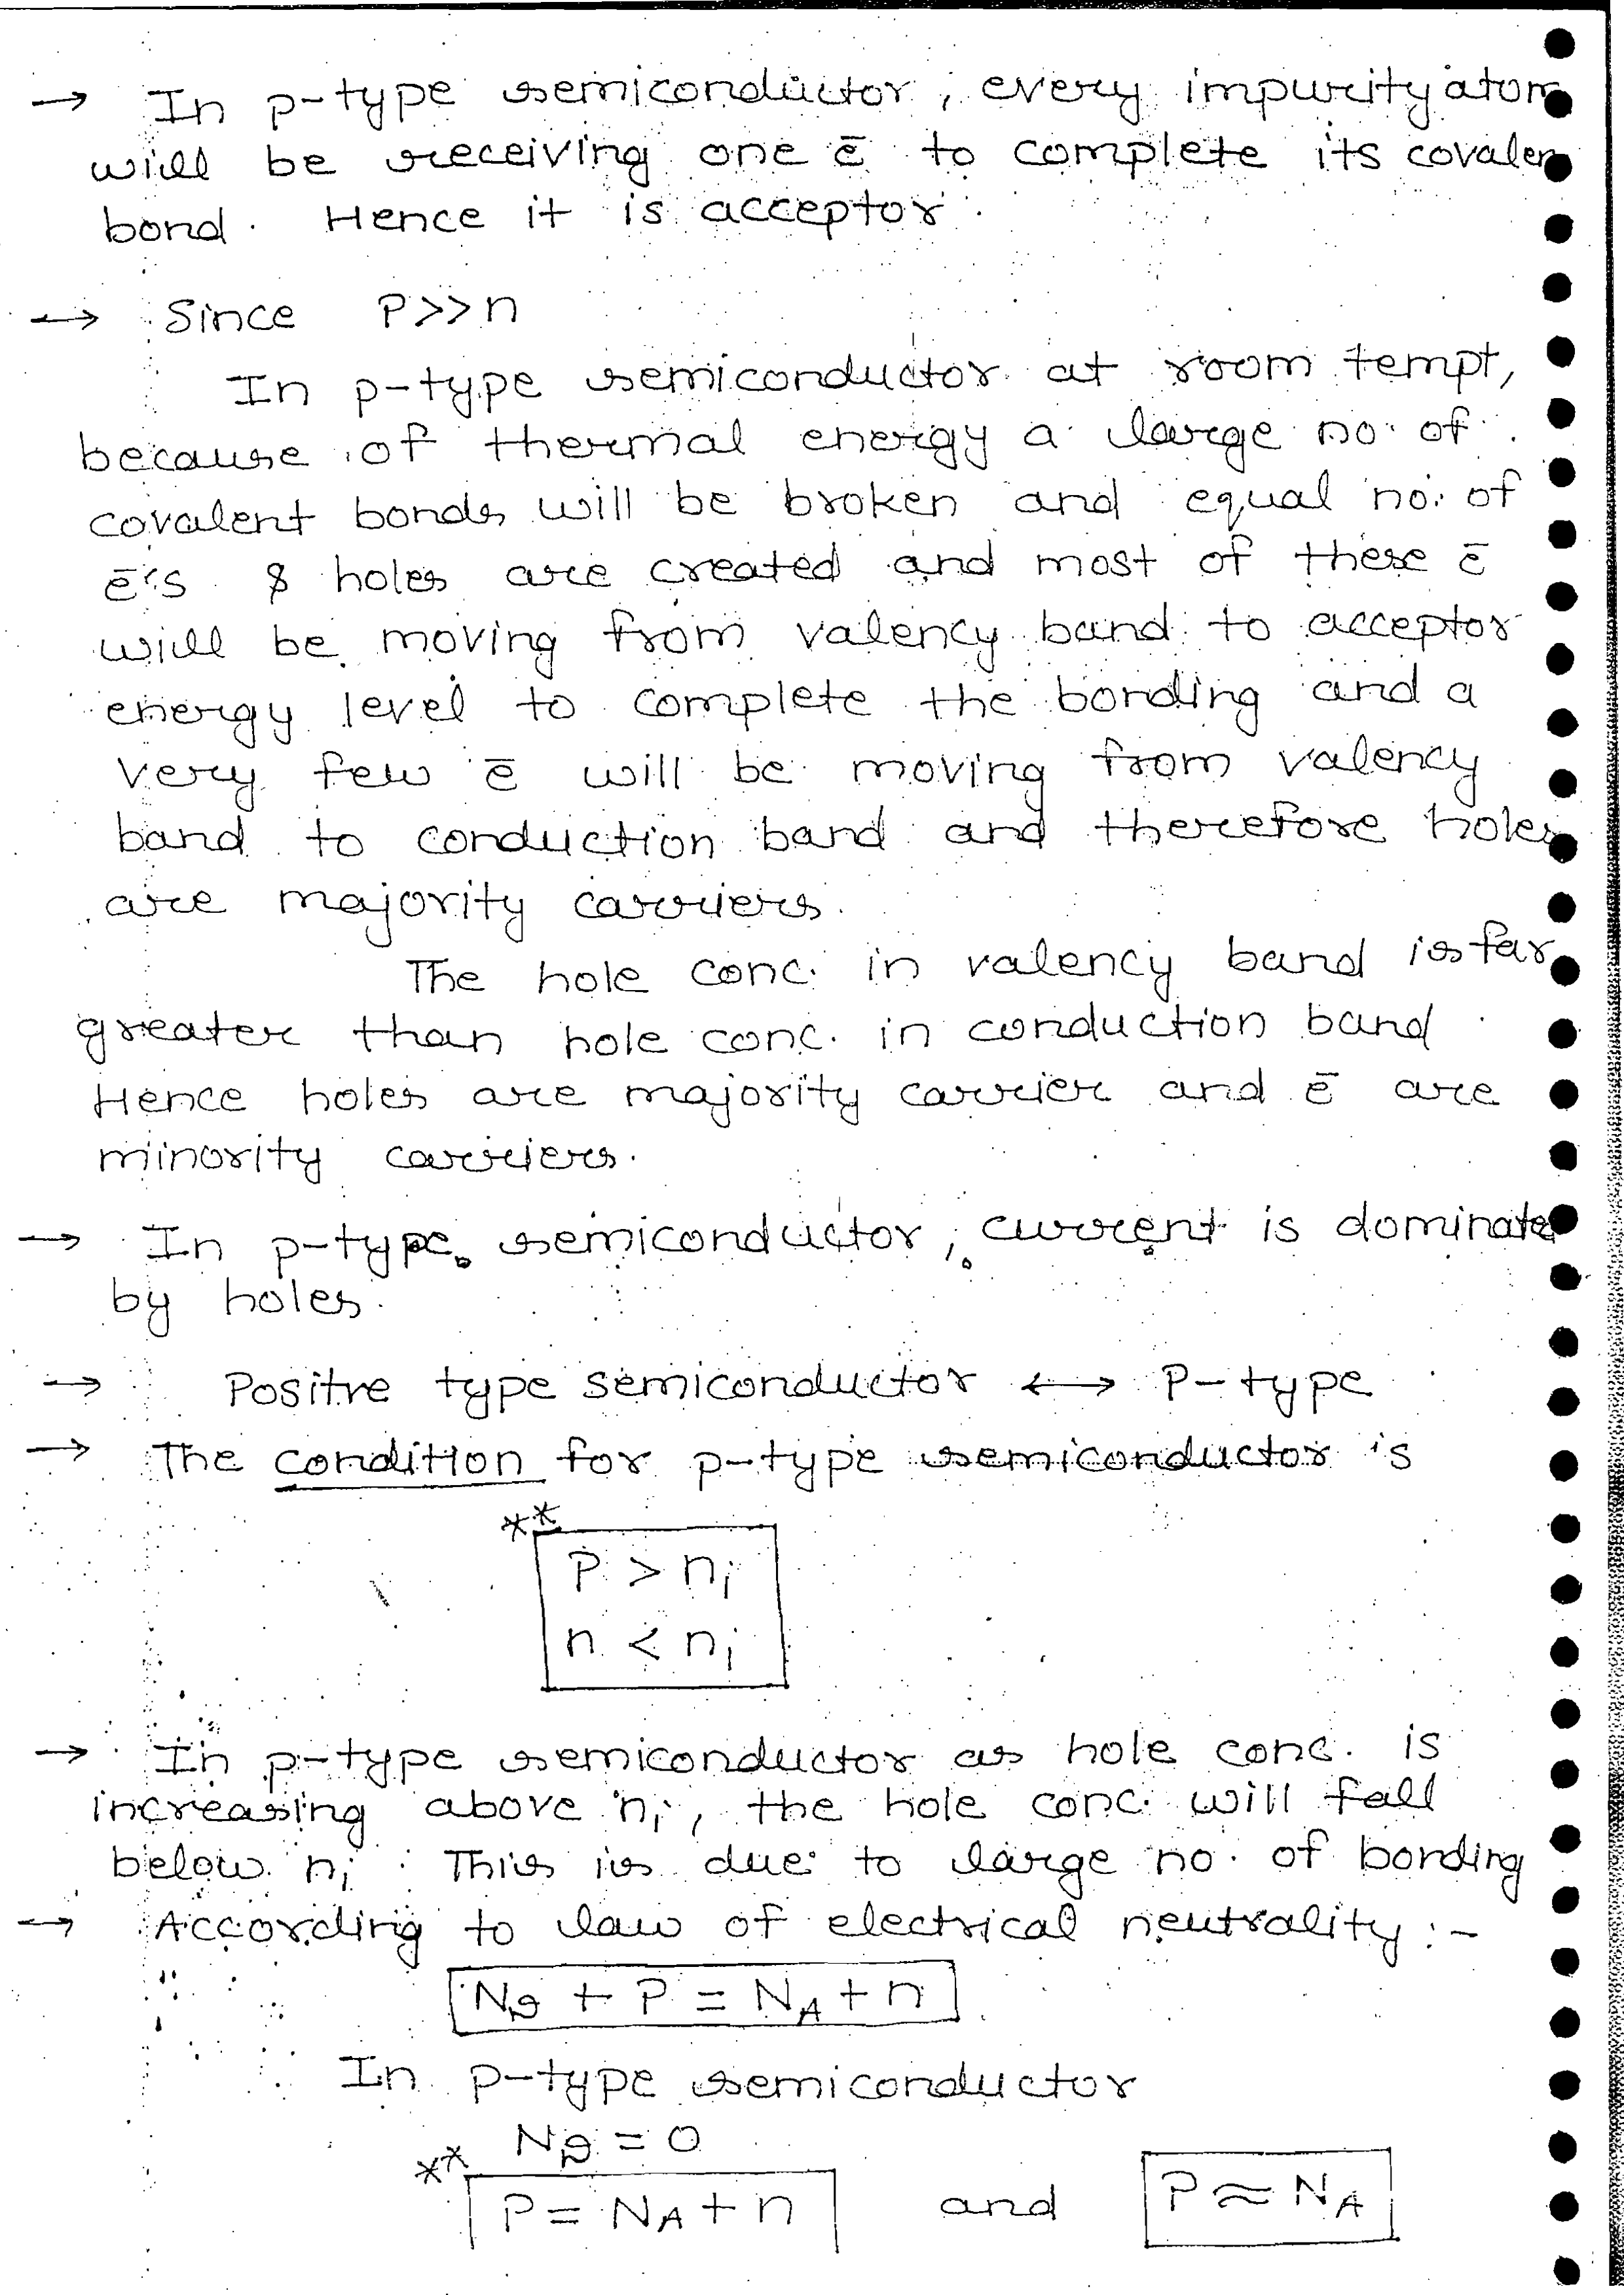 → In p-type semiconductor, every impurity atom
will be receiving one ē to complete its covalen
bond. Hence it is acceptor.
→ Since P>>n
In p-type semiconductor at room tempt,
because of thermal energy a large no. of
covalent bonds will be broken and equal no. of
ē's & holes are created and most of these ē
will be moving from valency band to acceptor
energy level to complete the bonding and a
very few ē will be moving from valency
band to conduction band and therefore holes
are majority carriers.
The hole conc. in valency band is far
greater than hole conc. in conduction band.
Hence holes are majority carrier and ē are
minority carriers.
→ In p-type semiconductor, current is dominate
by holes.
→ Positve type semiconductor ↔ P-type
→ The condition for p-type semiconductor is
**
P > nᵢ
n < nᵢ
→ In p-type semiconductor as hole conc. is
increasing above nᵢ, the hole conc. will fall
below nᵢ. This is due to large no. of bonding
→ According to law of electrical neutrality :-
N_D + P = N_A + n
In p-type semiconductor
N_D = 0
** P = N_A + n and P ≈ N_A